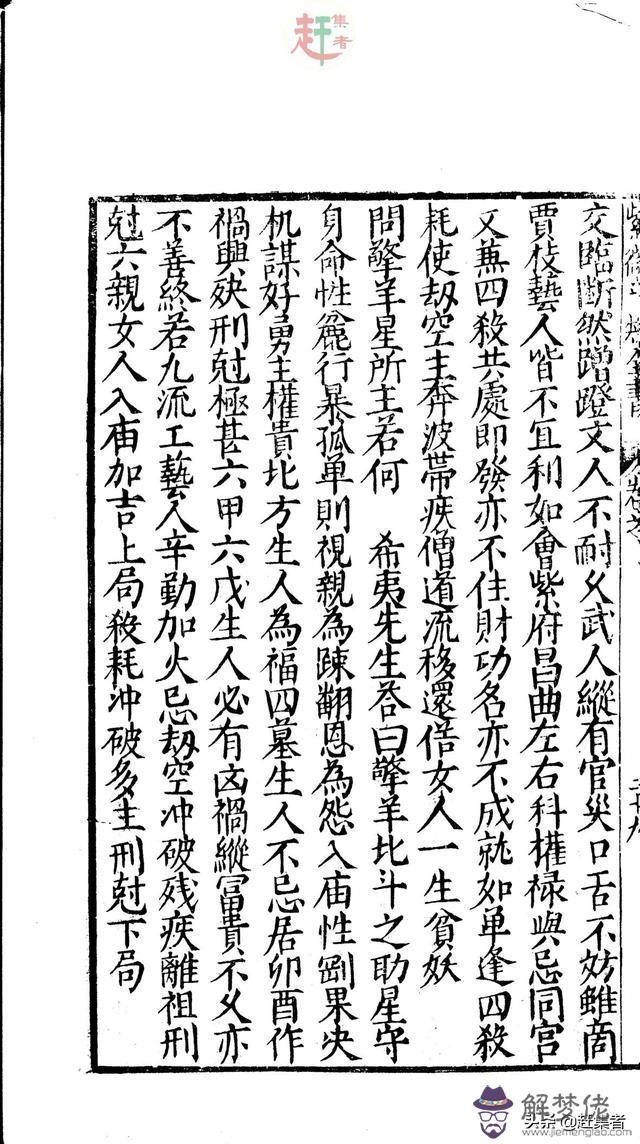 赶集者
交臨断然蹭蹬文人不耐久武人縱有官災口舌不妨雖商
賈技藝人皆不宜利如會紫府昌曲左右科權祿與忌同宮
又兼四殺共處即發亦不住財功名亦不成就如单逢四殺
耗使刼空主奔波帶疾僧道流移還俗女人一生貧妖
問擎羊星所主若何 希夷先生荅曰擎羊北斗之助星守
身命性麄行暴孤单則視親為踈翻恩為怨入庙性剛果决
机謀好勇主權貴北方生人為福四墓生人不忌居卯酉作
禍興殃刑尅極甚六甲六戊生人必有凶禍縱富貴不久亦
不善終若九流工藝人辛勤加火忌刼空冲破残疾離祖刑
尅六親女人入庙加吉上局殺耗冲破多主刑尅下局
解梦佬
www.jiemenglab.com
头条 @赶集者